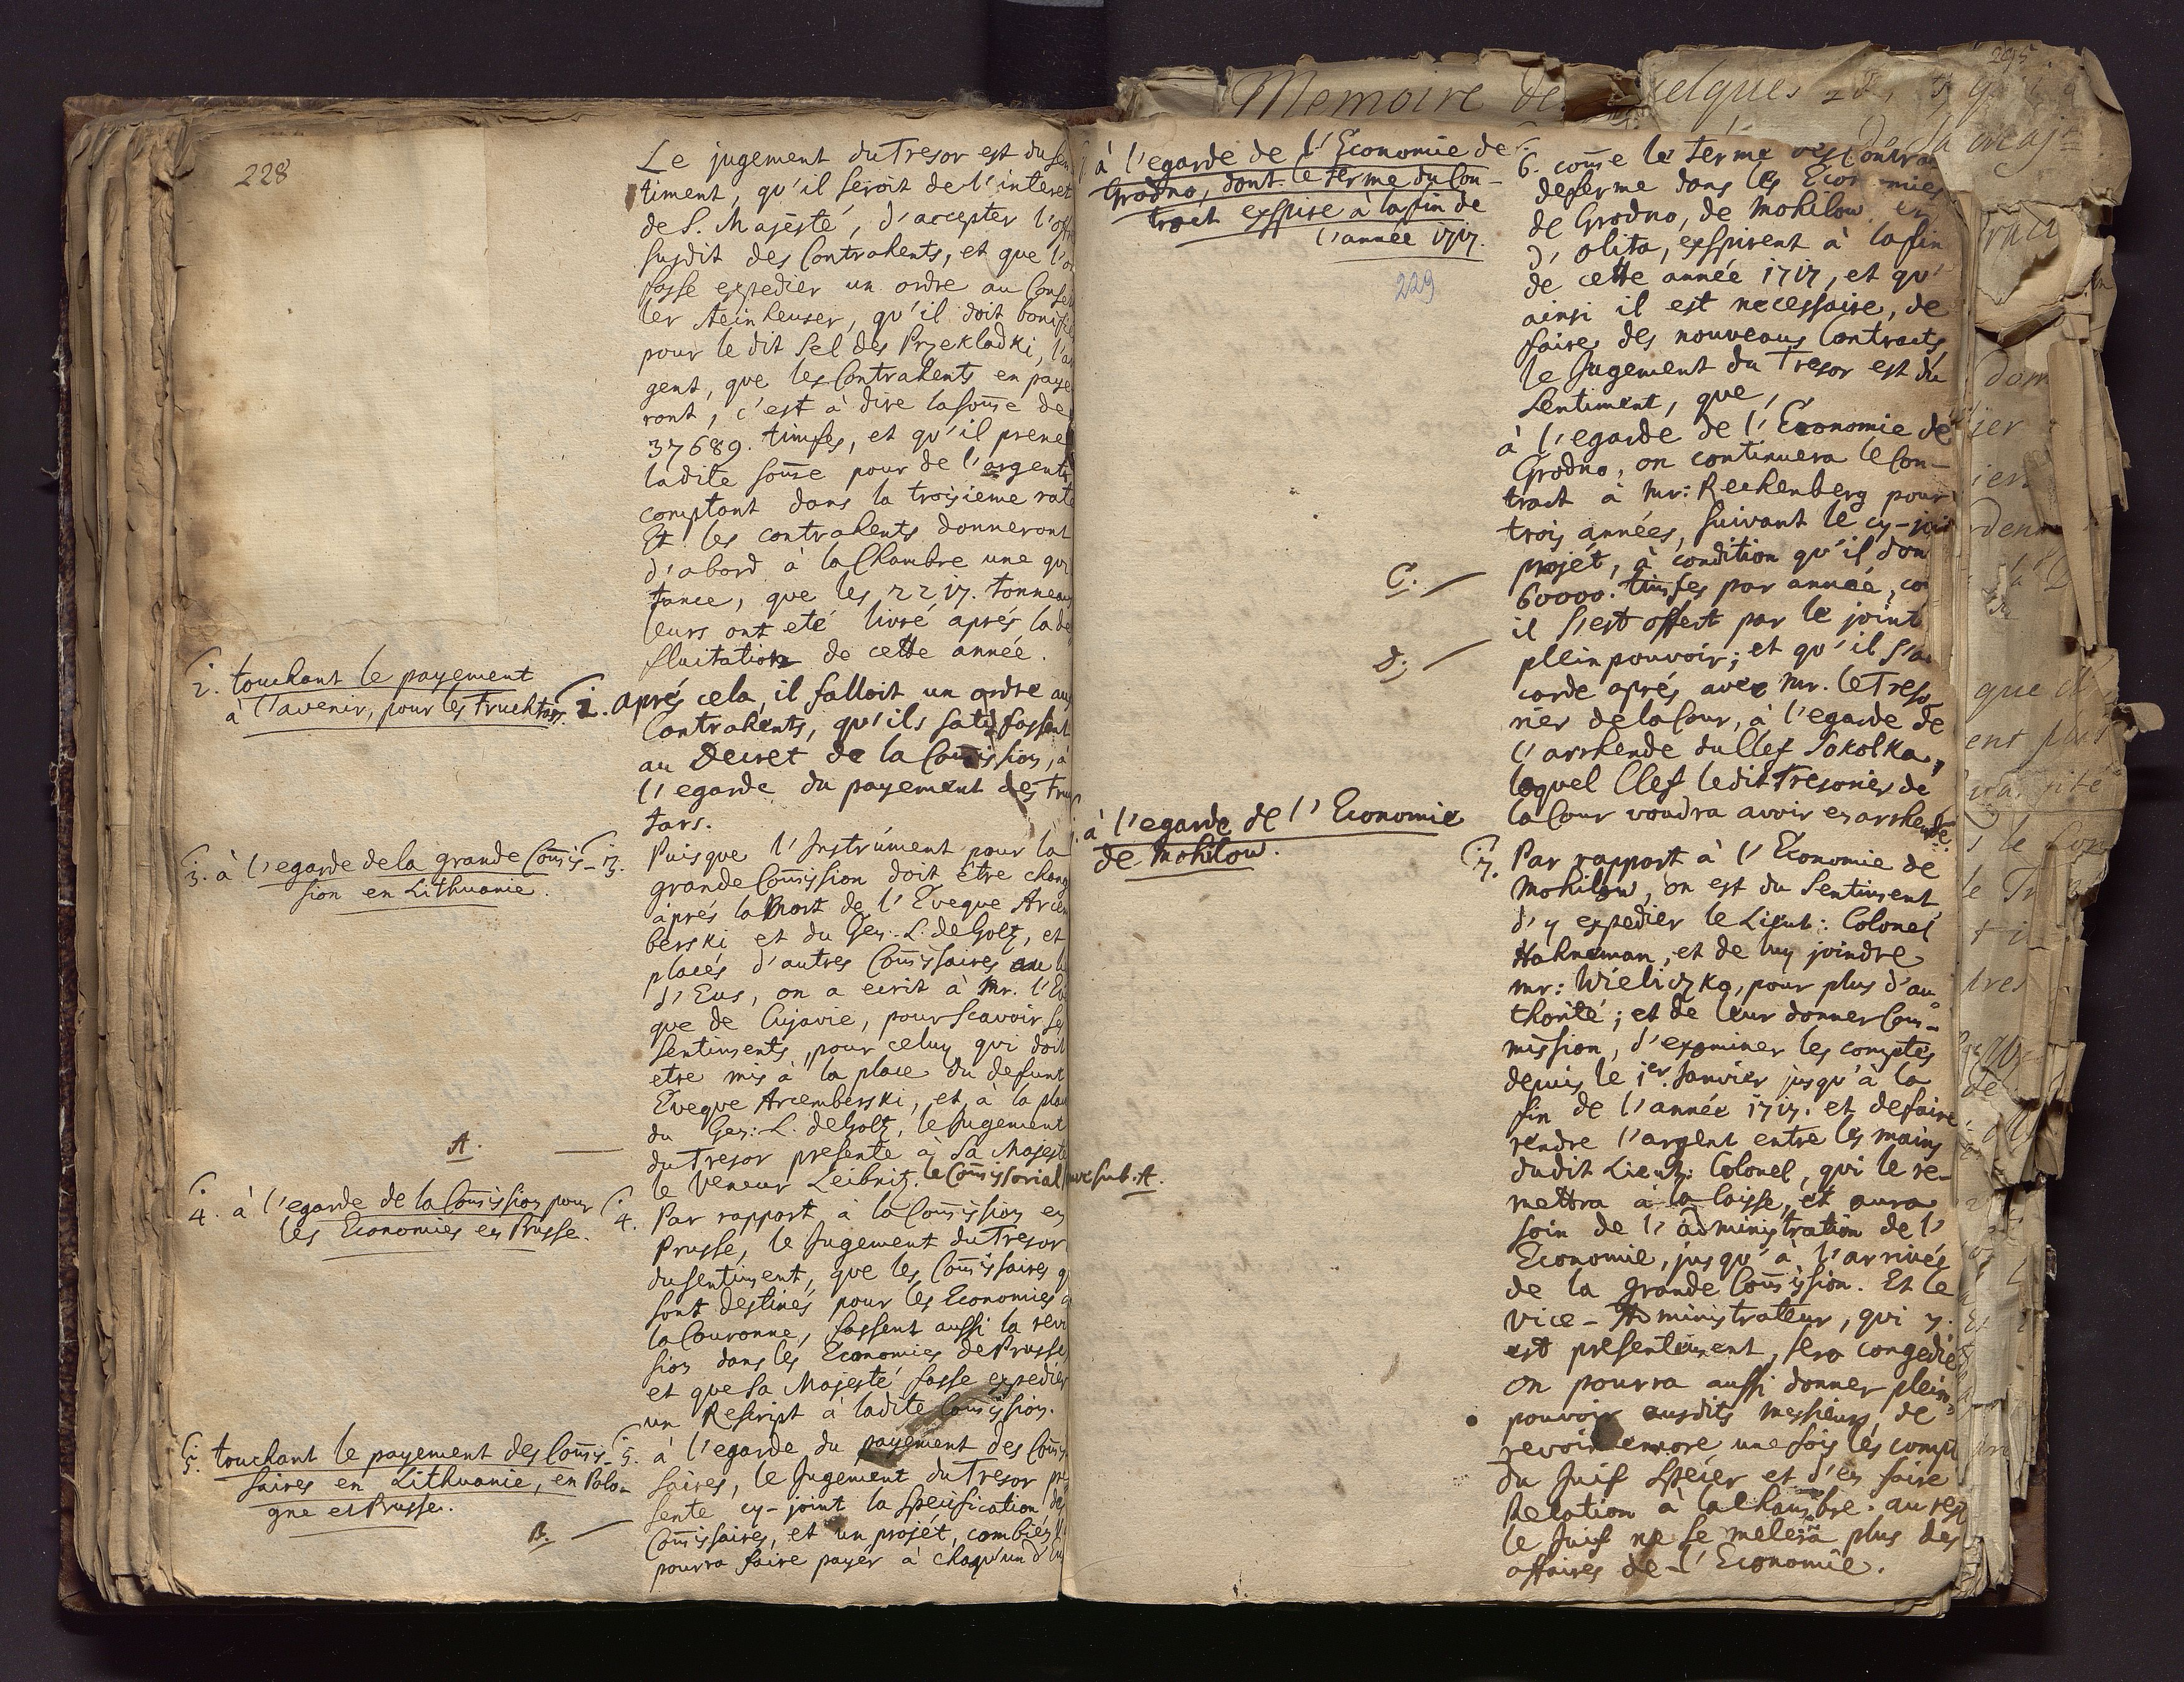 228
Le jugement du Tresor est du sen
timent, qu'il seroit de l'interet
de S. Majesté, d'accepter l'off
susdit des Contrahents, et que l'o
fasse expedier un ordre au Consei
ler Steinheuser, qu'il doit bonifie
pour le dit Sel des Przekladki, l'ar
gent, que les Contrahents en paye
ront, c'est à dire la som̄e de
37689. timfes, et qu'il prene
ladite som̄e pour de l'argent
comptant dans la troisieme rate
Et les contrahents donneront
d'abord à la Chambre une qui
tance, que les 2217. tonneaux
leurs ont eté livré aprés la de
fluitation de cette année.
2. touchant le payement
à l'avenir, pour les Fruchtars.
2. Aprés cela, il falloit un ordre aux
Contrahents, qu'ils satisfassent
au Decret de la Com̄ission, à
l'egarde du payement des Fru
tars.
3. à l'egarde de la grande Com̄is-
sion en Lithuanie.
3. Puisque l'Instrúment pour la
grande Com̄ission doit étre chang
áprés la Mort de l'Eveque Arcem
berski et du Gen. L. de Goltz, et
placés d'autres Com̄issaires au li
d'Eus, on a ecrit à Mr. l'Ev
que de Cujavie, pour scavoir ses
sentiments, pour celuy qui doit
etre mis à la place du defunt
Eveque Arcemberski, et, à la plac
du Gen: L. de Goltz, le Jugement
du Tresor presente à Sa Majesté
A.
le Veneur Leibnitz. le Com̄issorial sub. A.
4. à l'egarde de la Com̄ission pour
les Economies en Prusse.
4. Par rapport à la Com̄ission en
Prusse, le Jugement du Tresor
du sentiment, que les Com̄issaires q
sont destinés pour les Economies d
la Couronne, fassent aussi la revi
sion dans les Economies de Prusse,
et que Sa Majesté fasse expedier
un Rescript à ladite Com̄ission.
5. touchant le payement des Com̄is-
saires en Lithuanie, en Polo-
gne et Prusse.
5. à l'egarde du payement des Com̄is
saires, le Jugement du Tresor pre
sente cy-joint la Specification des
B.
Com̄issaires, et un projét, combien
pourra faire payér à chaqu'un d'Eu
à l'egarde de l'Economie de
Grodno, dont le terme du Con-
tract exspire à la fin de
l'année 1717.
229
6. com̄e le térme des Contra
de ferme dans les Economies
de Grodno, de Mohilow et
d'Olita, exspirent à la fin
de cette année 1717, et qu'
ainsi il est necessaire, de
faires des nouveaus Contracts,
le Jugement du Tresor est du
Sentiment, que,
à l'egarde de l'Economie de
Grodno, on continuera le Con-
tract à Mr: Rechenberg pour
trois années, suivant le cy-joint
C.
projét, à condition qu'il don
60000. timfes par année, co
il s'est offert par le joint
D.
plein pouvoir; et qu'il s'ac
corde aprés avec Mr. le Treso
rier de la Cour, à l'egarde de
l'arrhende du Clef Sokolka,
loquel Clef ledit Tresorier de
la Cour voudra avoir en arrhende.
à l'egarde de l'Economie
de Mohilow.
7. Par rapport à l'Economie de
Mohilow, on est du Sentiment,
d'y expedier le Lieut: Colonel
Hahneman, et de luy joindre
Mr: Wieliczko, pour plus d'au-
thorité; et de leur donner Com-
mission, d'examiner les comptes
depuis le 1er Janvier jusqu'à la
fin de l'année 1717. et de faire
rendre l'argent entre les mains
dudit Lieut: Colonel, qui le re-
mettra à la Caisse, et aura
soin de l'administration de l'
Economie, jusqu'à l'arrivée
de la grande Com̄ission. Et le
Vice-Administrateur, qui y
est presentement, sera congedié
On pourra aussi donner plein
pouvoir ausdits Messieurs, de
revoir encore une fois les compt
du Juif Speier et d'en faire
Relation à la Chambre. au rest
le Juif ne se melera plus des
affaires de l'Economie.
Memoire de quelques
295